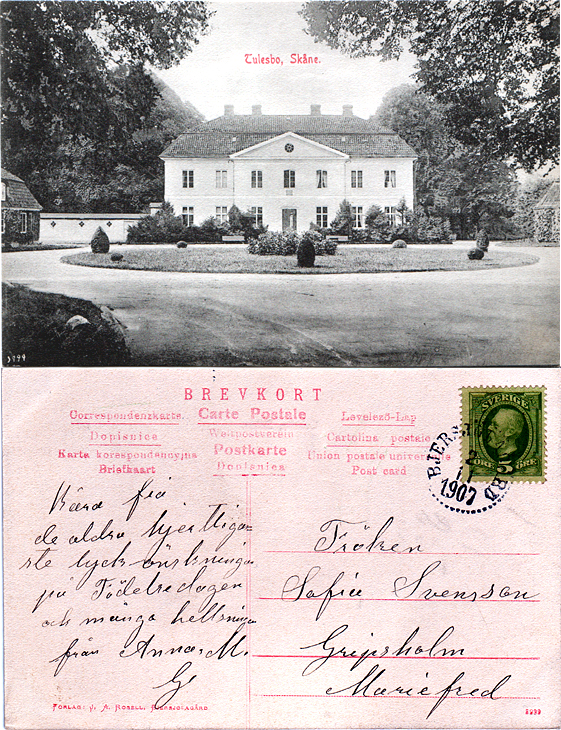 Tulesbo, Skåne.
3999
BREVKORT
Correspondenzkarte
Carte Postale
Levelező-Lap
Dopisnice
Weltpostverein
Cartolina postale
Karta korespondencyjna
Postkarte
Union postale universelle
Briefkaart
Dopisnica
Post card
SVERIGE
ÖRE 5 ÖRE
1907
Kära
de aldra hjertliga-
ste lyck-önskninga
på Födelsedagen
och många helsninga
från Anna M.
G
Fröken
Sofia Svensson
Gripsholm
Mariefred
FÖRLAG: J. A. ROSELL, BJERSJÖLAGÅRD
3999